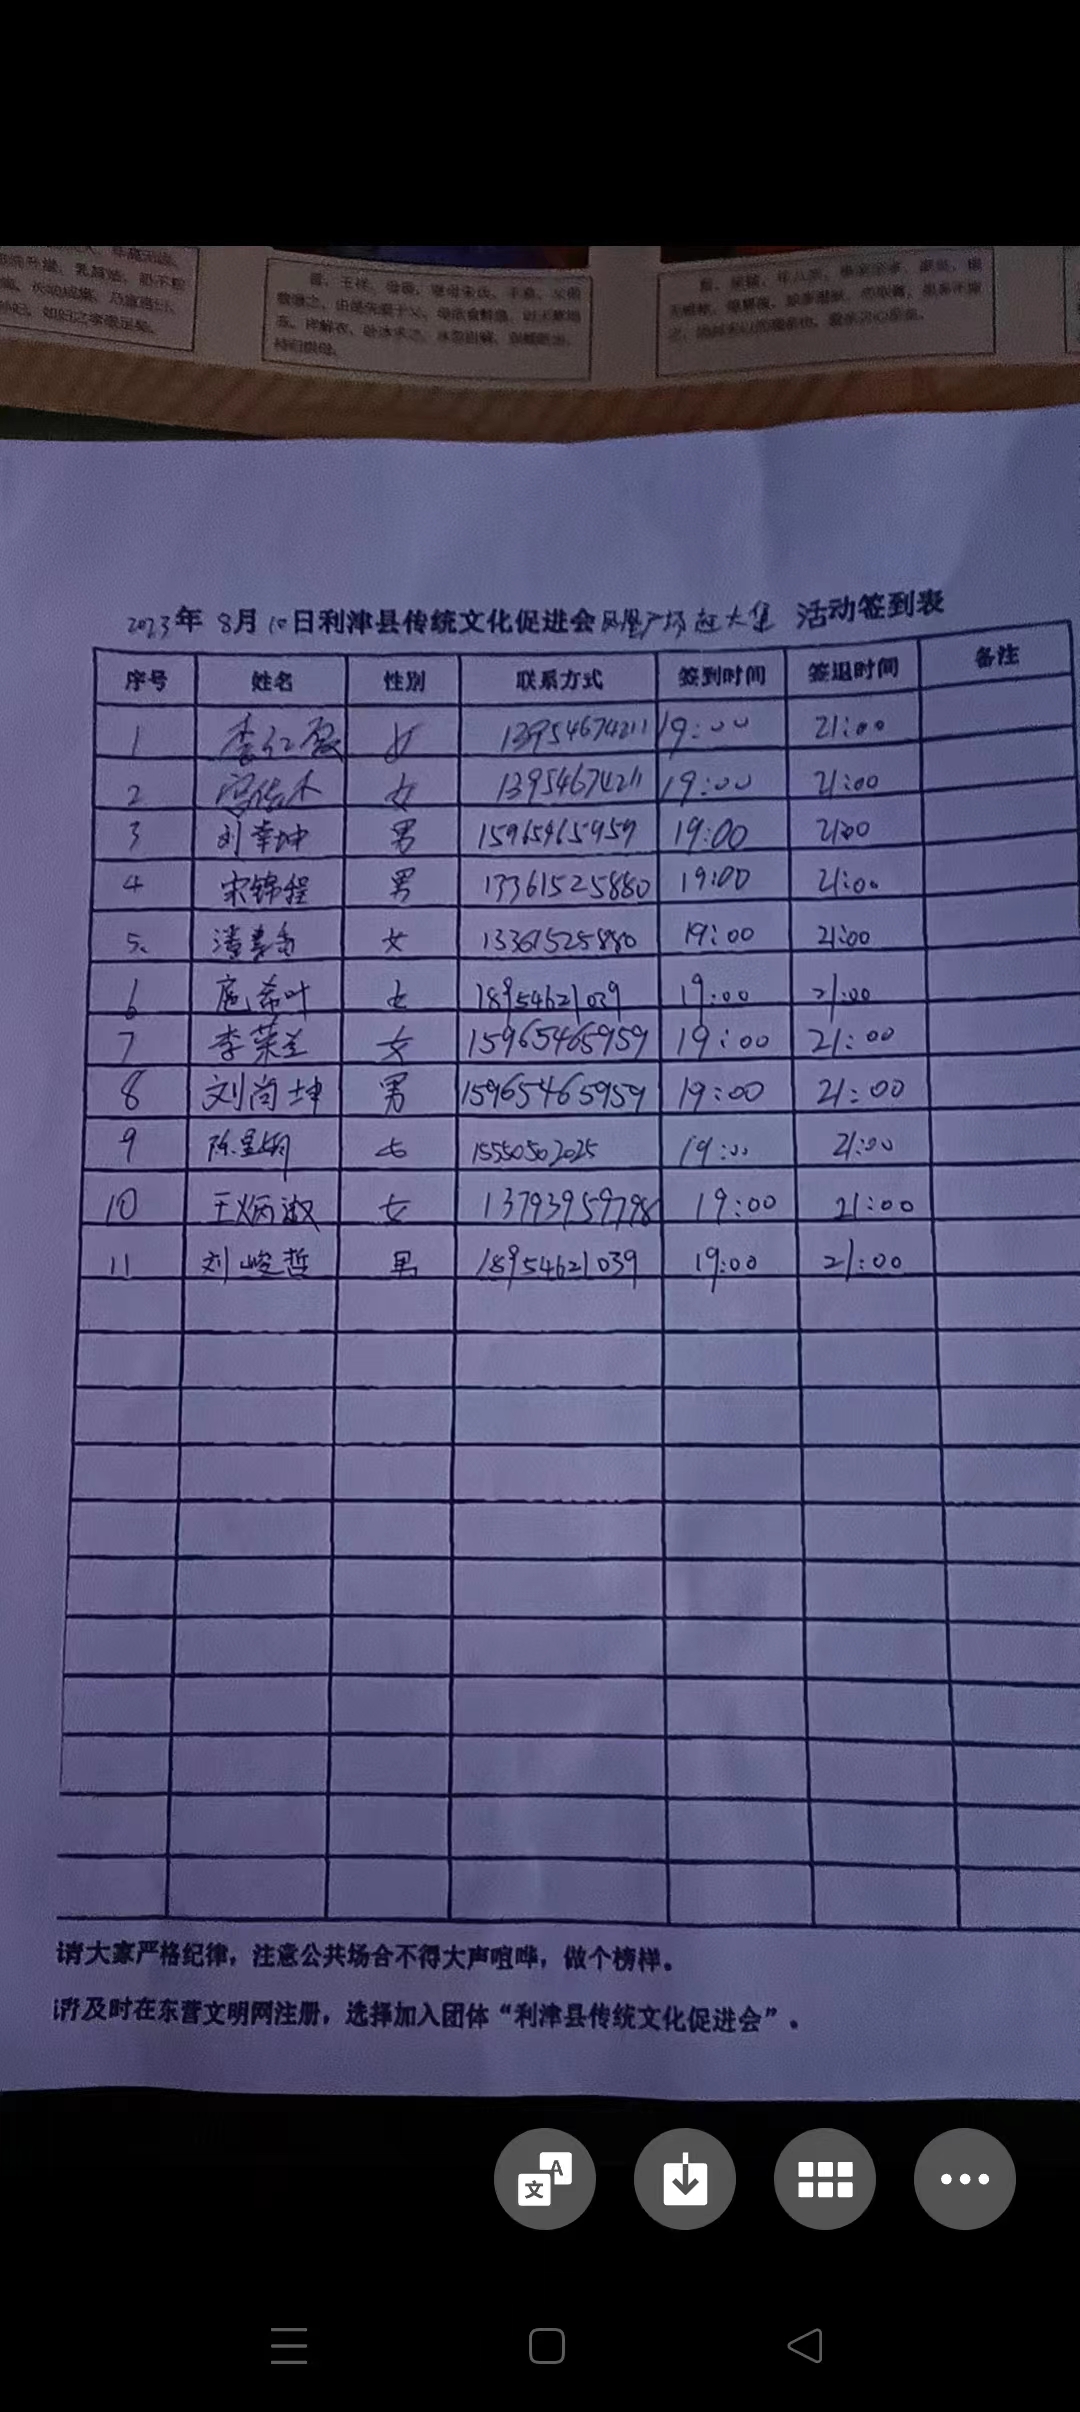 2023年 8月10日利津县传统文化促进会凤凰广场赶大集 活动签到表
序号 姓名 性别 联系方式 签到时间 签退时间 备注
1 李红霞 女 13954674211 19:00 21:00
2 女 13954674211 19:00 21:00
3 刘幸坤 男 15965465959 19:00 21:00
4 宋锦程 男 13361525880 19:00 21:00
5. 潘春香 女 13361525880 19:00 21:00
6 扈希叶 女 18954621039 19:00 21:00
7 李荣兰 女 15965465959 19:00 21:00
8 刘尚坤 男 15965465959 19:00 21:00
9 女 15550502025 19:00 21:00
10 王炳淑 女 13793959798 19:00 21:00
11 刘峻哲 男 18954621039 19:00 21:00
请大家严格纪律，注意公共场合不得大声喧哗，做个榜样。
请及时在东营文明网注册，选择加入团体“利津县传统文化促进会”。